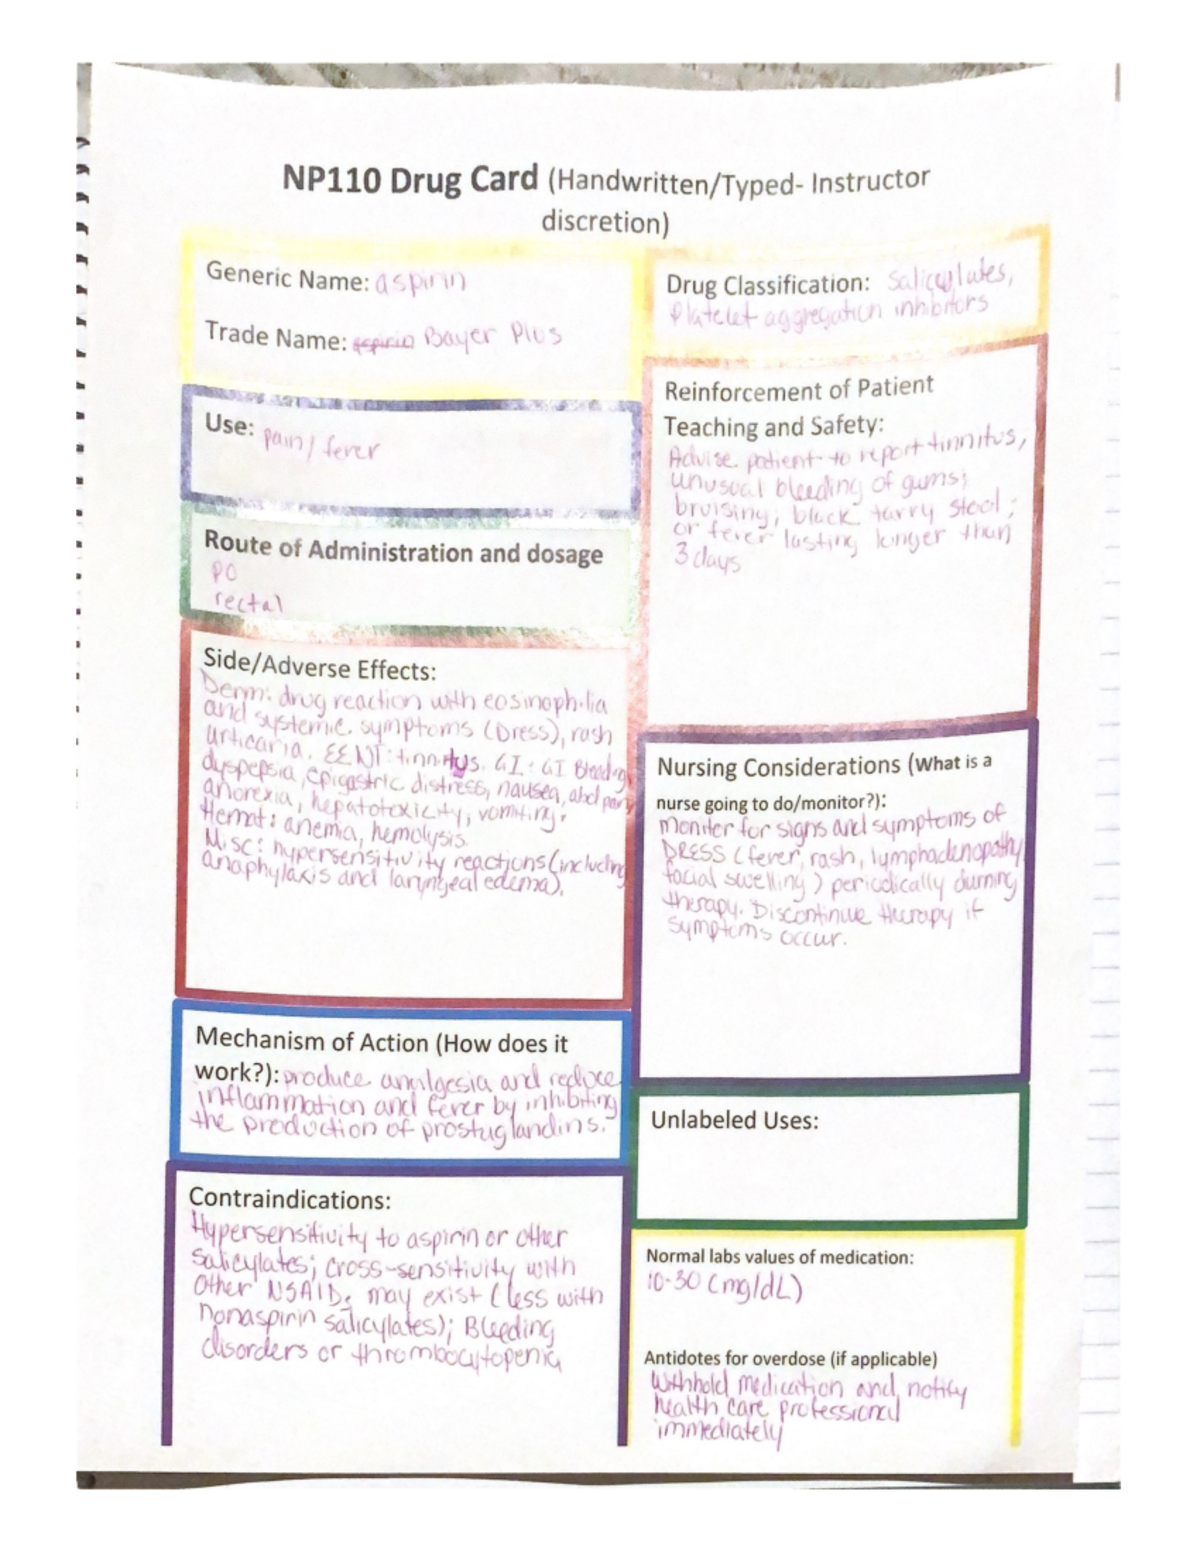 NP110 Drug Card (Handwritten/Typed- Instructor
discretion)
Generic Name: aspirin
Trade Name: aspirin Bayer Plus
Use: pain/ fever
Route of Administration and dosage
PO
rectal
Side/Adverse Effects:
Derm: drug reaction with eosinophilia
and systemic symptoms (Dress), rash
urticaria. EENT: tinnitus. GI: GI Bleeding
dyspepsia, epigastric distress, nausea, abd pain
anorexia, hepatotoxicity, vomiting.
Hemat: anemia, hemolysis.
Misc: hypersensitivity reactions (including
anaphylaxis and laryngeal edema).
Mechanism of Action (How does it
work?): produce analgesia and reduce
inflammation and fever by inhibiting
the production of prostuglandins.
Contraindications:
Hypersensitivity to aspirin or other
salicylates; cross-sensitivity with
other NSAIDs may exist (less with
nonaspirin salicylates); Bleeding
disorders or thrombocytopenia
Drug Classification: Salicylates,
Platelet aggregation inhibitors
Reinforcement of Patient
Teaching and Safety:
Advise patient to report tinnitus,
unusual bleeding of gums;
bruising; black tarry stool;
or fever lasting longer than
3 days
Nursing Considerations (What is a
nurse going to do/monitor?):
Moniter for signs and symptoms of
DRESS (fever, rash, lymphadenopathy
facial swelling) periodically durning
therapy. Discontinue therapy if
symptoms occur.
Unlabeled Uses:
Normal labs values of medication:
10-30 (mg/dL)
Antidotes for overdose (if applicable)
Withhold medication and notify
health care professional
immediately